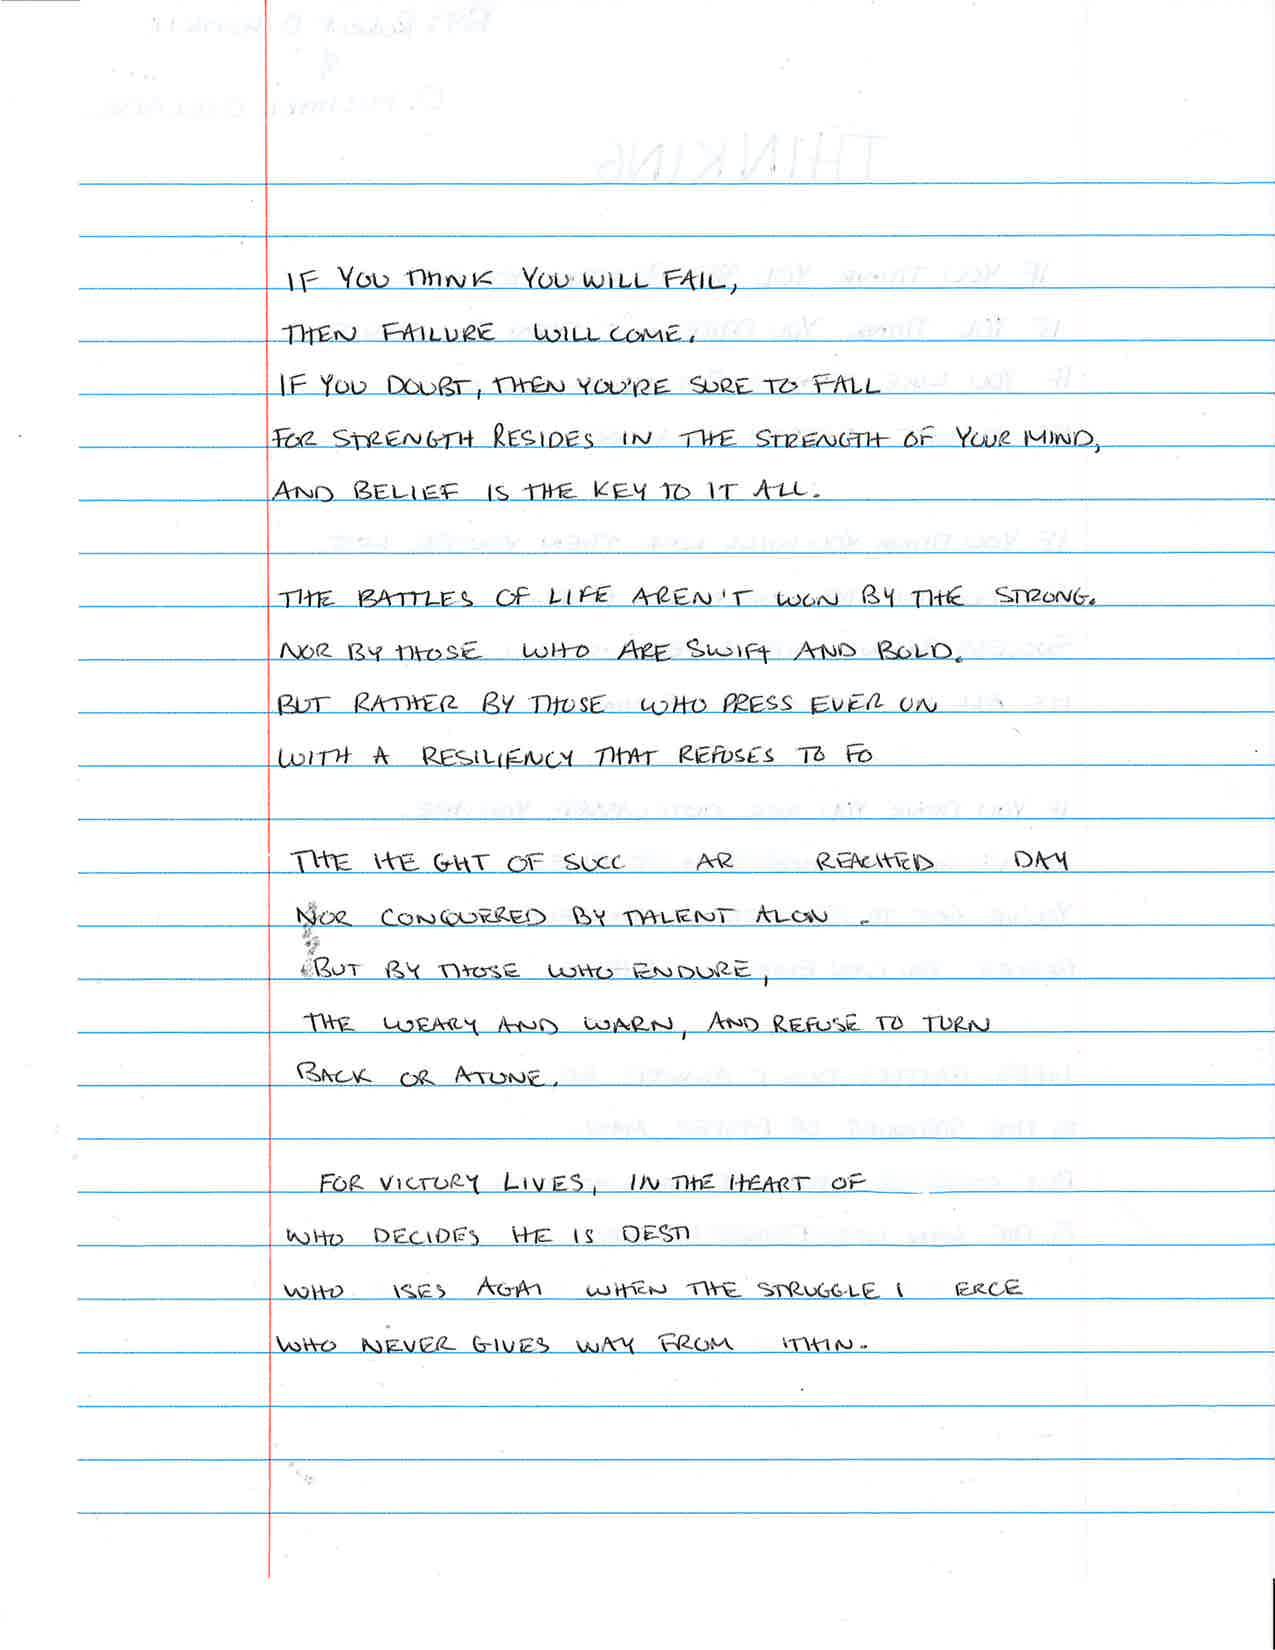 IF YOU THINK YOU WILL FAIL,
THEN FAILURE WILL COME.
IF YOU DOUBT, THEN YOU'RE SURE TO FALL
FOR STRENGTH RESIDES IN THE STRENGTH OF YOUR MIND,
AND BELIEF IS THE KEY TO IT ALL.
THE BATTLES OF LIFE AREN'T WON BY THE STRONG.
NOR BY THOSE WHO ARE SWIFT AND BOLD.
BUT RATHER BY THOSE WHO PRESS EVER ON
WITH A RESILIENCY THAT REFUSES TO FO
THE HE GHT OF SUCC AR REACHED DAY
NOR CONQUERED BY TALENT ALON .
BUT BY THOSE WHO ENDURE,
THE WEARY AND WARN, AND REFUSE TO TURN
BACK OR ATUNE.
FOR VICTORY LIVES, IN THE HEART OF
WHO DECIDES HE IS DESTI
WHO ISES AGAI WHEN THE STRUGGLE I ERCE
WHO NEVER GIVES WAY FROM ITHIN.